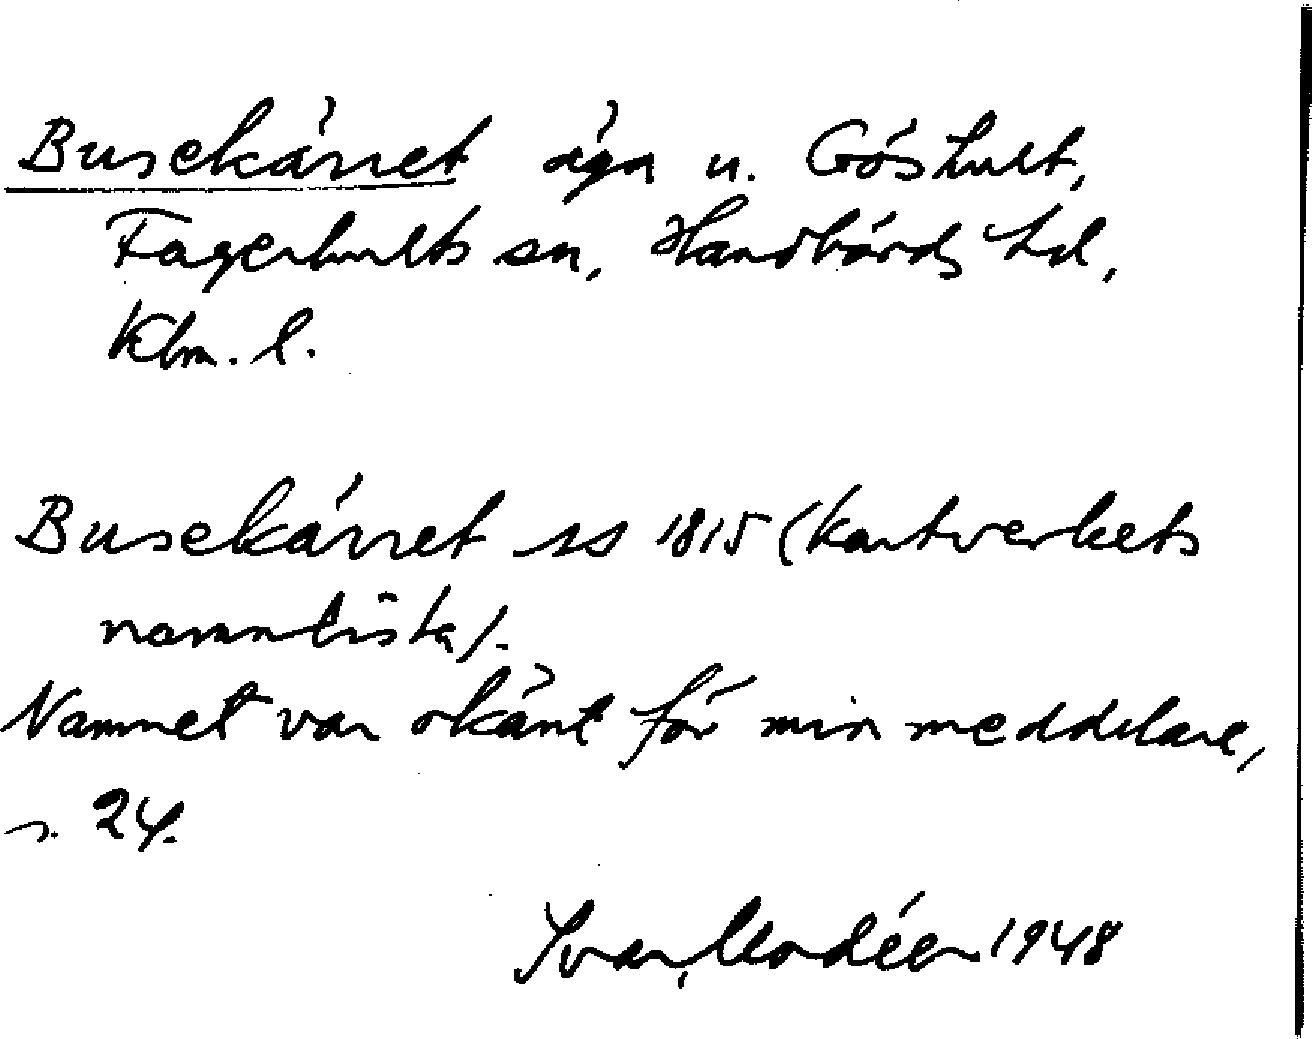 Busekärret äga u. Göshult,
Fagerhults sn, Handbörds hd,
Klm. l.
Busekärret ss 1815 (Kartverkets
namnlista).
Namnet var okänt för min meddelare,
s. 24.
Ivar Modéer 1948